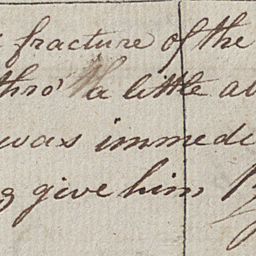 fracture of the
thro' a little
was immed
give him